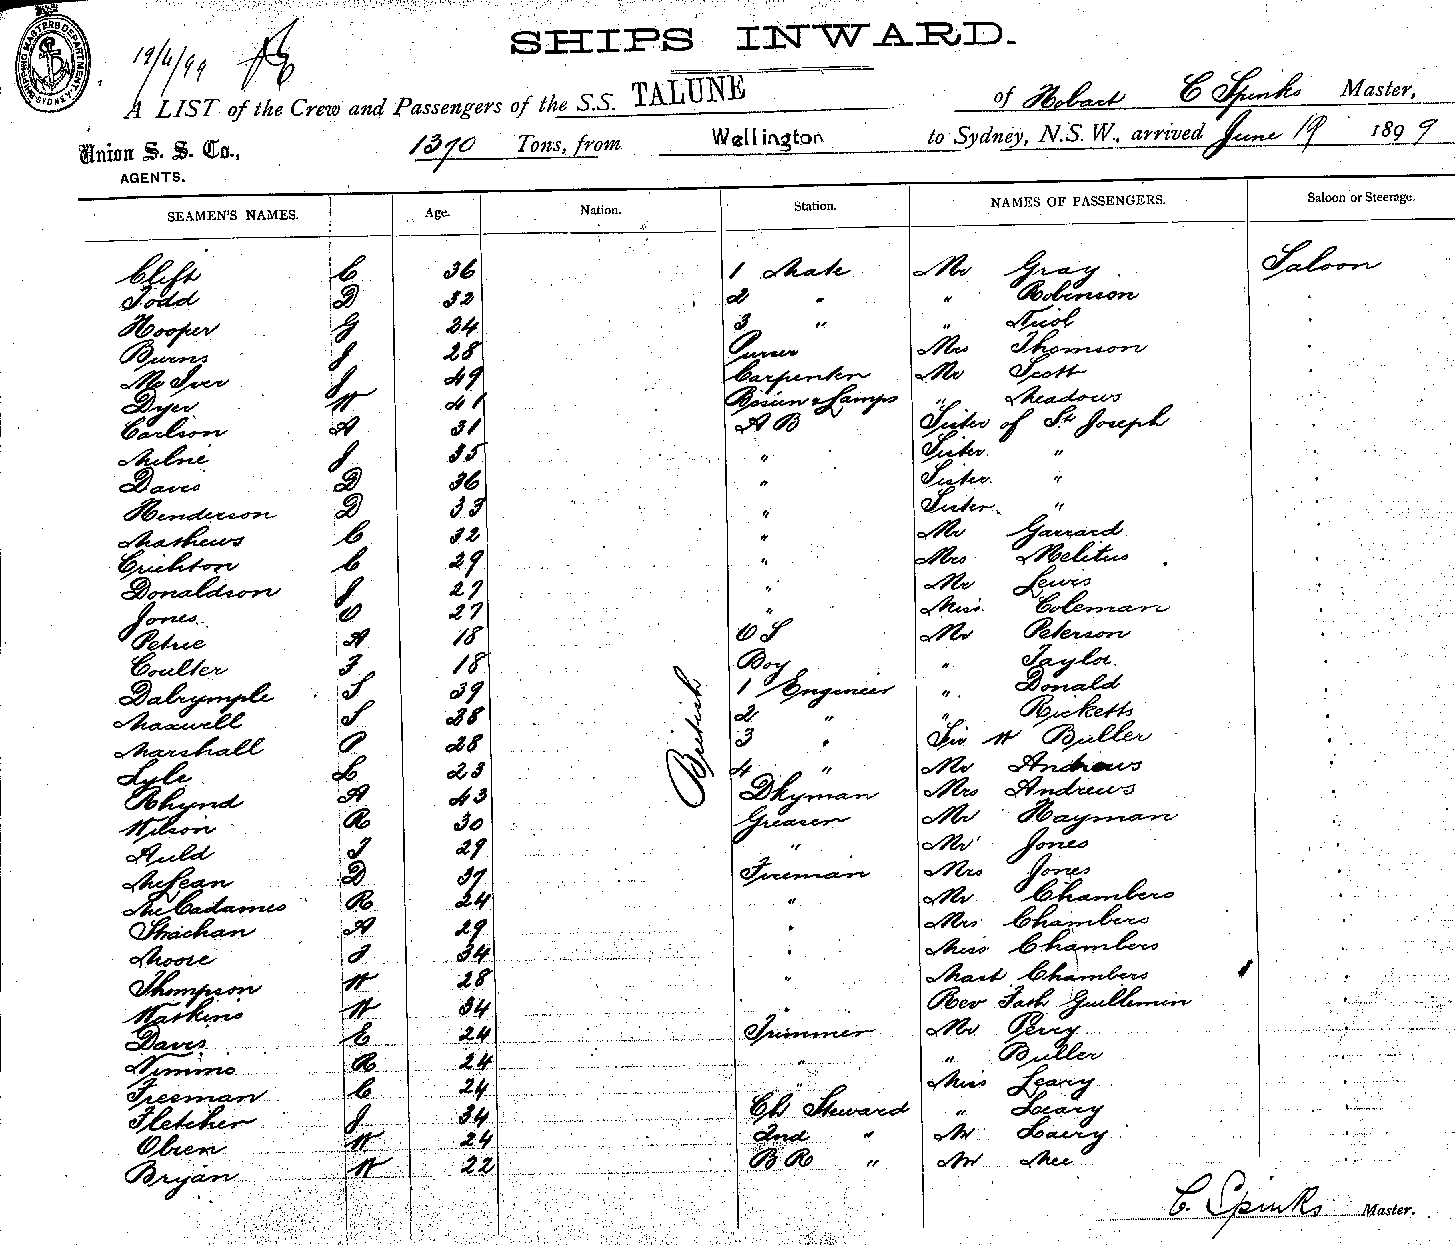 SHIPPING MASTERS DEPARTMENT SYDNEY
SHIPS INWARD.
19/6/99
A LIST of the Crew and Passengers of the S.S. TALUNE of Hobart C Spinks Master,
Union S. S. Co., 1370 Tons, from Wellington to Sydney, N.S.W., arrived June 19 1899
AGENTS.
SEAMEN'S NAMES. Age. Nation. Station. NAMES OF PASSENGERS. Saloon or Steerage.
Clift C 36 1 Mate Mr Gray Saloon
Todd D 32 2 " " Robinson
Hooper G 24 3 " " Nicol
Burns J 28 Purser Mrs Thomson
McIver J 49 Carpenter Mr Scott
Dyer W 41 Bosun & Lamps " Meadows
Carlson A 31 A B Sister of St Joseph
Milne J 35 " Sister "
Davis D 36 " Sister "
Henderson D 33 " Sister "
Mathews C 32 " Mr Garrard
Crichton C 29 " Mrs Melitus
Donaldson J 27 " Mr Lewis
Jones O 27 " Miss Coleman
Petrie A 18 O S Mr Peterson
Coulter F 18 Boy " Taylor
Dalrymple S 39 1 Engineer " Donald
Maxwell S 28 2 " " Ricketts
Marshall P 28 3 " Sir W Buller
Lyle L 23 4 " Mr Andrews
Rhynd A 43 Dkyman Mrs Andrews
Wilson R 30 Greaser Mr Hayman
Auld T 29 " Mr Jones
McLean D 37 Fireman Mrs Jones
McCadames R 24 " Mr Chambers
Strachan A 29 " Mrs Chambers
Moore J 34 " Miss Chambers
Thompson W 28 " Mast Chambers
Watkins W 34 " Rev Fath Guillemin
Davis E 24 Trimmer Mr Perry
Nimmo R 24 " " Buller
Freeman C 24 " Miss Leary
Fletcher J 34 Ch Steward " Leary
Obren W 24 2nd " Mr Laery
Bryan W 22 B R " Mr Mee
British
C. Spinks Master.